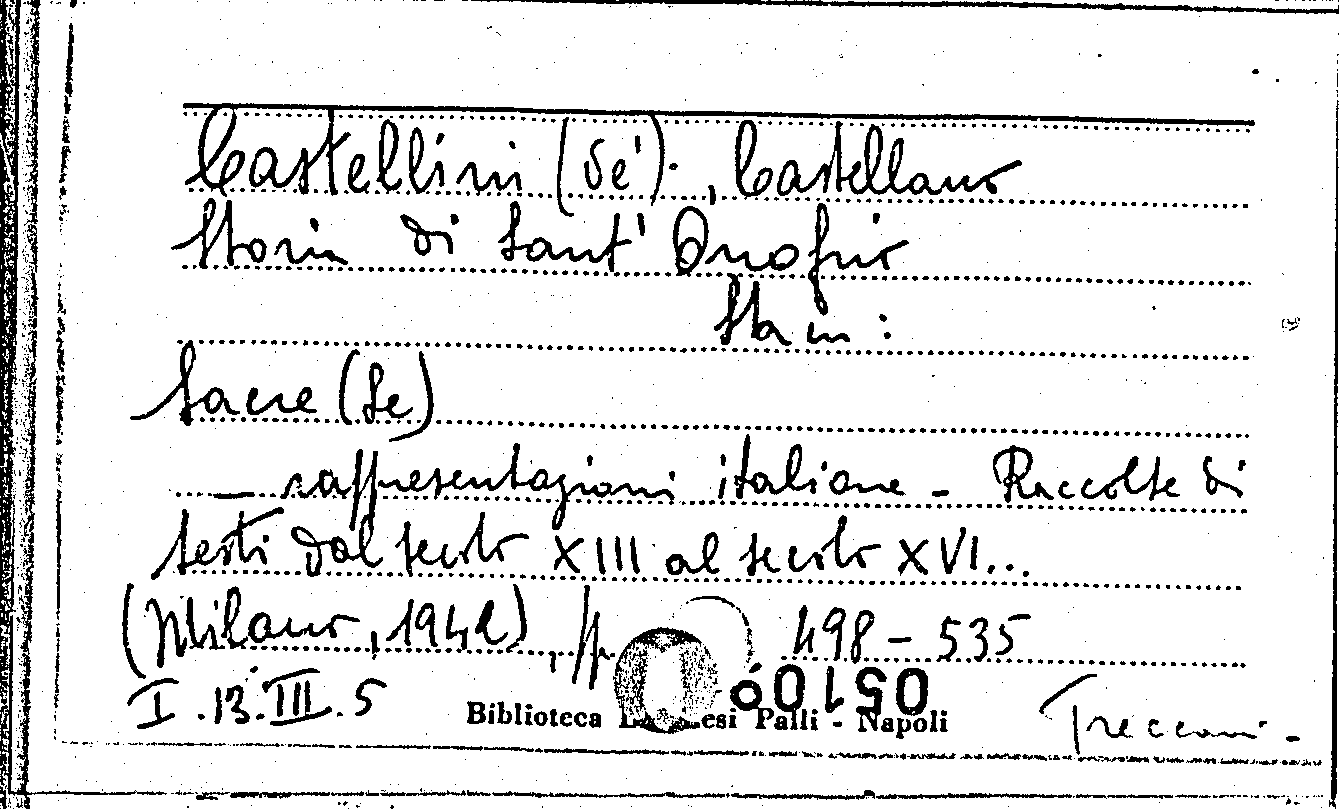 Castellini (de'). , Castellano
Storia di Sant' Onofrio
Sta in:
Sacre (Le)
— rappresentazioni italiane - Raccolte di
testi dal secolo XIII al secolo XVI...
(Milano, 1942), pp. 498-535
I.13.III.5
05106
Biblioteca Palli - Napoli
Treccani-